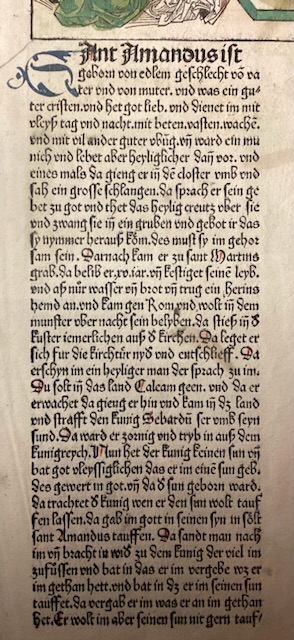 SAnt Amandus ist
geborn von edlem geschlecht võ va
ter vnd von muter. vnd was ein gu-
ter cristen. vnd het got lieb. vnd dienet im mit
vleyß tag vnd nacht. mit beten. vasten. wachē.
vnd mit vil ander guter vbūg. vñ ward ein mu
nich vnd lebet aber heyliglicher dañ vor. vnd
eines mals da gieng er iñ dē closter vmb vnd
sah ein grosse schlangen. da sprach er sein ge
bet zu got vnd thet das heylig creutz vber sie
vnd zwang sie iñ ein gruben vnd gebot ir das
sy nymmer herauß kõm. des must sy im gehor
sam sein. Darnach kam er zu sant Martins
grab. da belib er. xv. iar. vñ kestiget seinē leyb.
vnd aß nůr wasser vñ brot vñ trug ein herins
hemd an. vnd kam gen Rom. vnd wolt iñ dem
munster vber nacht sein belyben. da stieß iñ d̕
kuster iemerlichen auß d̕ kirchen. Da leget er
sich fur die kirchtür nyd̕ vnd entschlieff. Da
erschyn im ein heyliger man der sprach zu im.
Du solt iñ das land Caleam geen. vnd da er
erwachet da gieng er hin vnd kam iñ dz land
vnd strafft den kunig Sebardū ser vmb seyn
sund. Da ward er zornig vnd tryb in auß dem
kunigreych. Nun het der kunig keinen sun vñ
bat got vleyssiglichen das er im einē sun geb.
des gewert in got. vñ da d̕ sun geborn ward.
da trachtet d̕ kunig wen er den sun wolt tauf
fen lassen. da gab im gott in seinen syn in sölt
sant Amandus tauffen. Da sandt man nach
im vñ bracht in wid̕ zu dem kunig der viel im
zufüssen vnd bat in das er im vergebe wz er
im gethan hett. vnd bat in dz er im seinen sun
tauffet. da vergab er im was er an im gethan
het. Er wolt im aber seinen sun nit gern tauf/